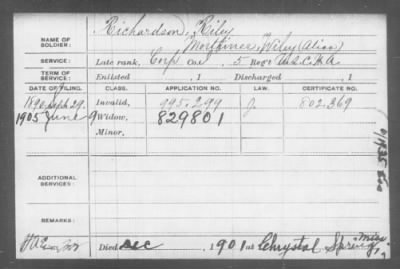 NAME OF SOLDIER: Richardson, Riley
Mortimer, Wiley (Alias)
SERVICE: Late rank, Corp Co. , 5 Reg't U.S.C.H.A.
TERM OF SERVICE: Enlisted , 1 Discharged , 1
DATE OF FILING. CLASS. APPLICATION NO. LAW. CERTIFICATE NO.
1890 Sept 29. Invalid, 995.299 J. 802.369
1905 June 9 Widow, 829801
Minor,
ADDITIONAL SERVICES:
REMARKS:
Died Dec , 1901 at Chrystal Springs Miss